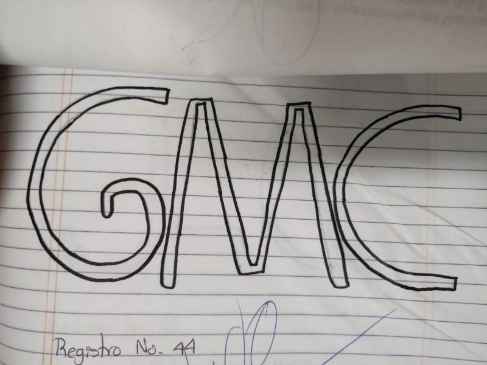 GMC
Registro No. 44